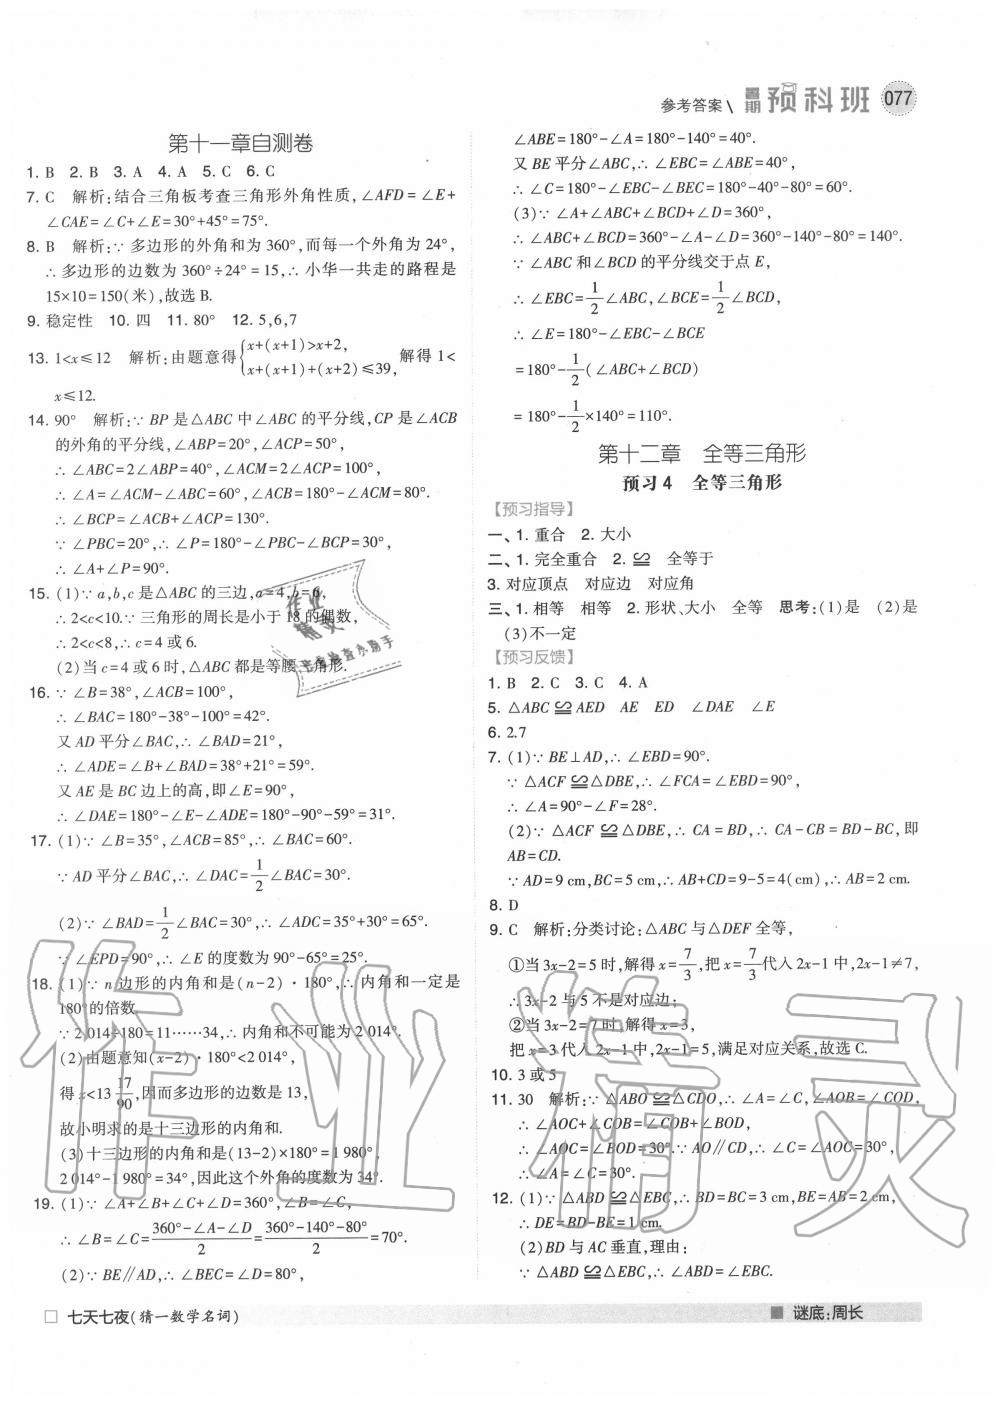 参考答案\ 暑期 预科班 077
第十一章自测卷
1. B 2. B 3. A 4. A 5. C 6. C
7. C 解析:结合三角板考查三角形外角性质,∠AFD=∠E+
∠CAE=∠C+∠E=30°+45°=75°.
8. B 解析:∵多边形的外角和为360°,而每一个外角为24°,
∴多边形的边数为360°÷24°=15,∴小华一共走的路程是
15×10=150(米),故选B.
9. 稳定性 10. 四 11. 80° 12. 5,6,7
13. 1<x≤12 解析:由题意得{x+(x+1)>x+2, x+(x+1)+(x+2)≤39, 解得1<
x≤12.
14. 90° 解析:∵BP是△ABC中∠ABC的平分线,CP是∠ACB
的外角的平分线,∠ABP=20°,∠ACP=50°,
∴∠ABC=2∠ABP=40°,∠ACM=2∠ACP=100°,
∴∠A=∠ACM-∠ABC=60°,∠ACB=180°-∠ACM=80°.
∴∠BCP=∠ACB+∠ACP=130°.
∵∠PBC=20°,∴∠P=180°-∠PBC-∠BCP=30°,
∴∠A+∠P=90°.
15. (1)∵a,b,c是△ABC的三边,a=4,b=6,
∴2<c<10.∵三角形的周长是小于18的偶数,
∴2<c<8,∴c=4或6.
(2)当c=4或6时,△ABC都是等腰三角形.
16. ∵∠B=38°,∠ACB=100°,
∴∠BAC=180°-38°-100°=42°.
又AD平分∠BAC,∴∠BAD=21°,
∴∠ADE=∠B+∠BAD=38°+21°=59°.
又AE是BC边上的高,即∠E=90°,
∴∠DAE=180°-∠E-∠ADE=180°-90°-59°=31°.
17. (1)∵∠B=35°,∠ACB=85°,∴∠BAC=60°.
∵AD平分∠BAC,∴∠DAC=1/2∠BAC=30°.
(2)∵∠BAD=1/2∠BAC=30°,∴∠ADC=35°+30°=65°.
∵∠EPD=90°,∴∠E的度数为90°-65°=25°.
18. (1)∵n边形的内角和是(n-2)·180°,∴内角和一定是
180°的倍数.
∵2 014÷180=11……34,∴内角和不可能为2 014°.
(2)由题意知(x-2)·180°<2 014°,
得x<13 17/90,因而多边形的边数是13,
故小明求的是十三边形的内角和.
(3)十三边形的内角和是(13-2)×180°=1 980°,
2 014°-1 980°=34°,因此这个外角的度数为34°.
19. (1)∵∠A+∠B+∠C+∠D=360°,∠B=∠C,
∴∠B=∠C=(360°-∠A-∠D)/2=(360°-140°-80°)/2=70°.
(2)∵BE∥AD,∴∠BEC=∠D=80°,
∠ABE=180°-∠A=180°-140°=40°.
又BE平分∠ABC,∴∠EBC=∠ABE=40°,
∴∠C=180°-∠EBC-∠BEC=180°-40°-80°=60°.
(3)∵∠A+∠ABC+∠BCD+∠D=360°,
∴∠ABC+∠BCD=360°-∠A-∠D=360°-140°-80°=140°.
∵∠ABC和∠BCD的平分线交于点E,
∴∠EBC=1/2∠ABC,∠BCE=1/2∠BCD,
∴∠E=180°-∠EBC-∠BCE
=180°-1/2(∠ABC+∠BCD)
=180°-1/2×140°=110°.
第十二章 全等三角形
预习4 全等三角形
【预习指导】
一、1. 重合 2. 大小
二、1. 完全重合 2. ≌ 全等于
3. 对应顶点 对应边 对应角
三、1. 相等 相等 2. 形状、大小 全等 思考:(1)是 (2)是
(3)不一定
【预习反馈】
1. B 2. C 3. C 4. A
5. △ABC≌AED AE ED ∠DAE ∠E
6. 2.7
7. (1)∵BE⊥AD,∴∠EBD=90°.
∵△ACF≌△DBE,∴∠FCA=∠EBD=90°,
∴∠A=90°-∠F=28°.
(2)∵△ACF≌△DBE,∴CA=BD,∴CA-CB=BD-BC,即
AB=CD.
∵AD=9 cm,BC=5 cm,∴AB+CD=9-5=4(cm),∴AB=2 cm.
8. D
9. C 解析:分类讨论:△ABC与△DEF全等,
①当3x-2=5时,解得x=7/3,把x=7/3代入2x-1中,2x-1≠7,
∴3x-2与5不是对应边;
②当3x-2=7时,解得x=3,
把x=3代入2x-1中,2x-1=5,满足对应关系,故选C.
10. 3或5
11. 30 解析:∵△ABO≌△CDO,∴∠A=∠C,∠AOB=∠COD,
∴∠AOC+∠COB=∠COB+∠BOD,
∴∠AOC=∠BOD=30°.∵AO∥CD,∴∠C=∠AOC=30°,
∴∠A=∠C=30°.
12. (1)∵△ABD≌△EBC,∴BD=BC=3 cm,BE=AB=2 cm,
∴DE=BD-BE=1 cm.
(2)BD与AC垂直,理由:
∵△ABD≌△EBC,∴∠ABD=∠EBC.
□ 七天七夜(猜一数学名词)
■ 谜底:周长
作业精灵
作业
精灵